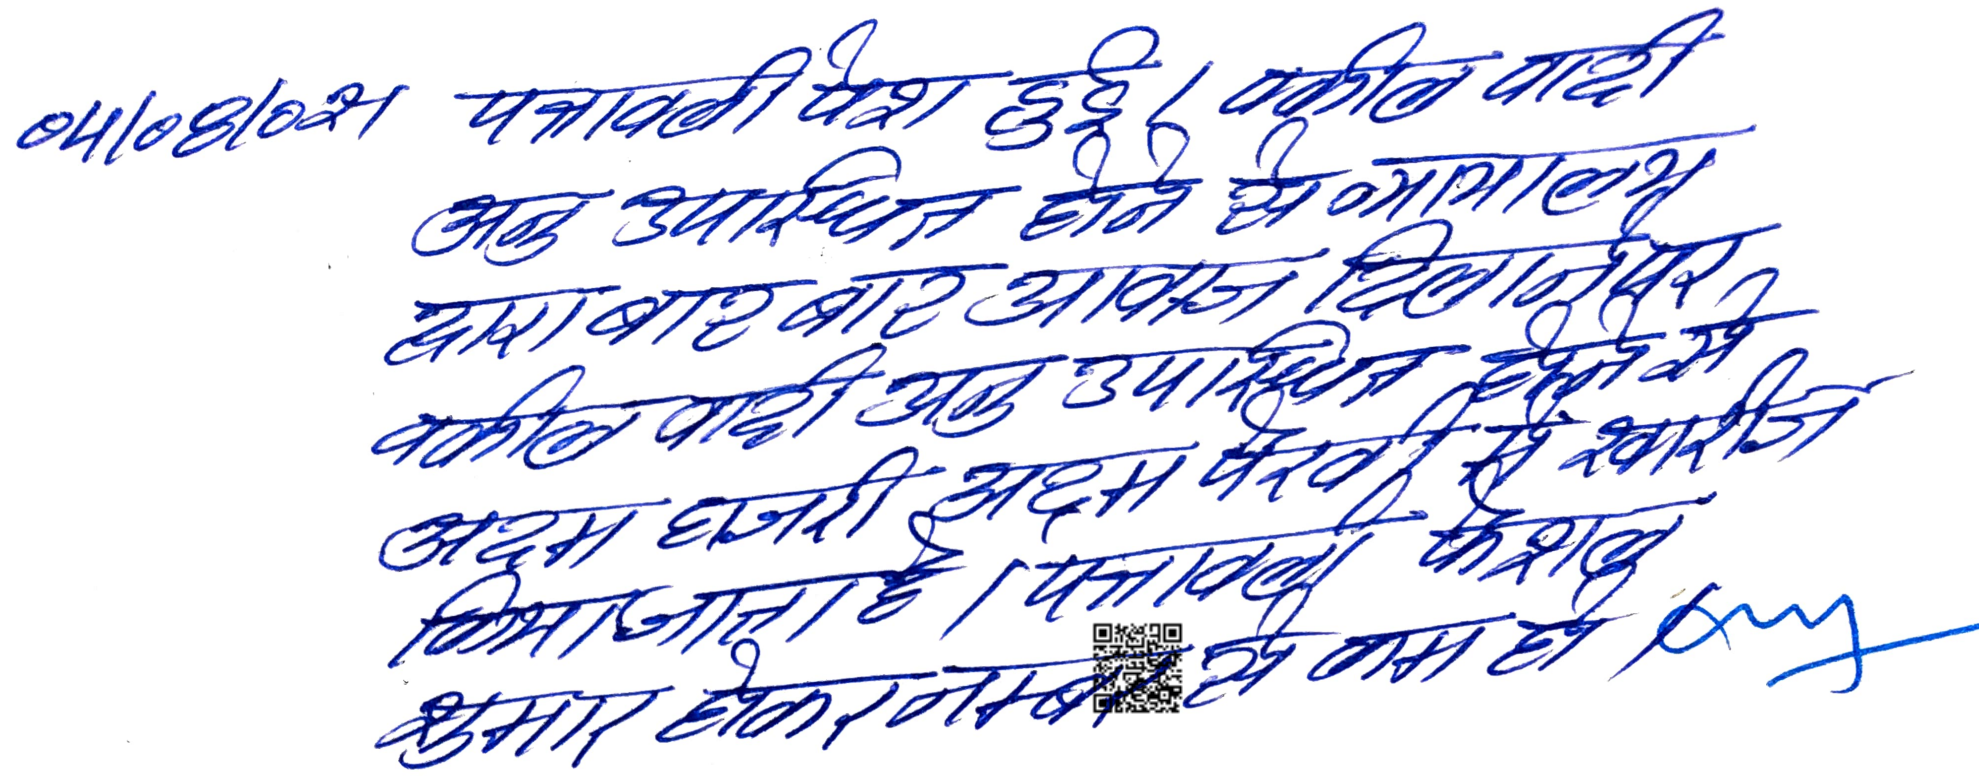 पत्रावली पेश हुई। वकील वादी
अनु उपस्थित होने से न्यायालय
द्वारा बार बार आवाज दिलाने पर
वकील वादी अनु उपस्थित होने से
अदम हाजरी अदम पेरवी से खारीज
किया जाता है। पत्रावली फेशल
शुमार होकर नम्बर से कम हो।